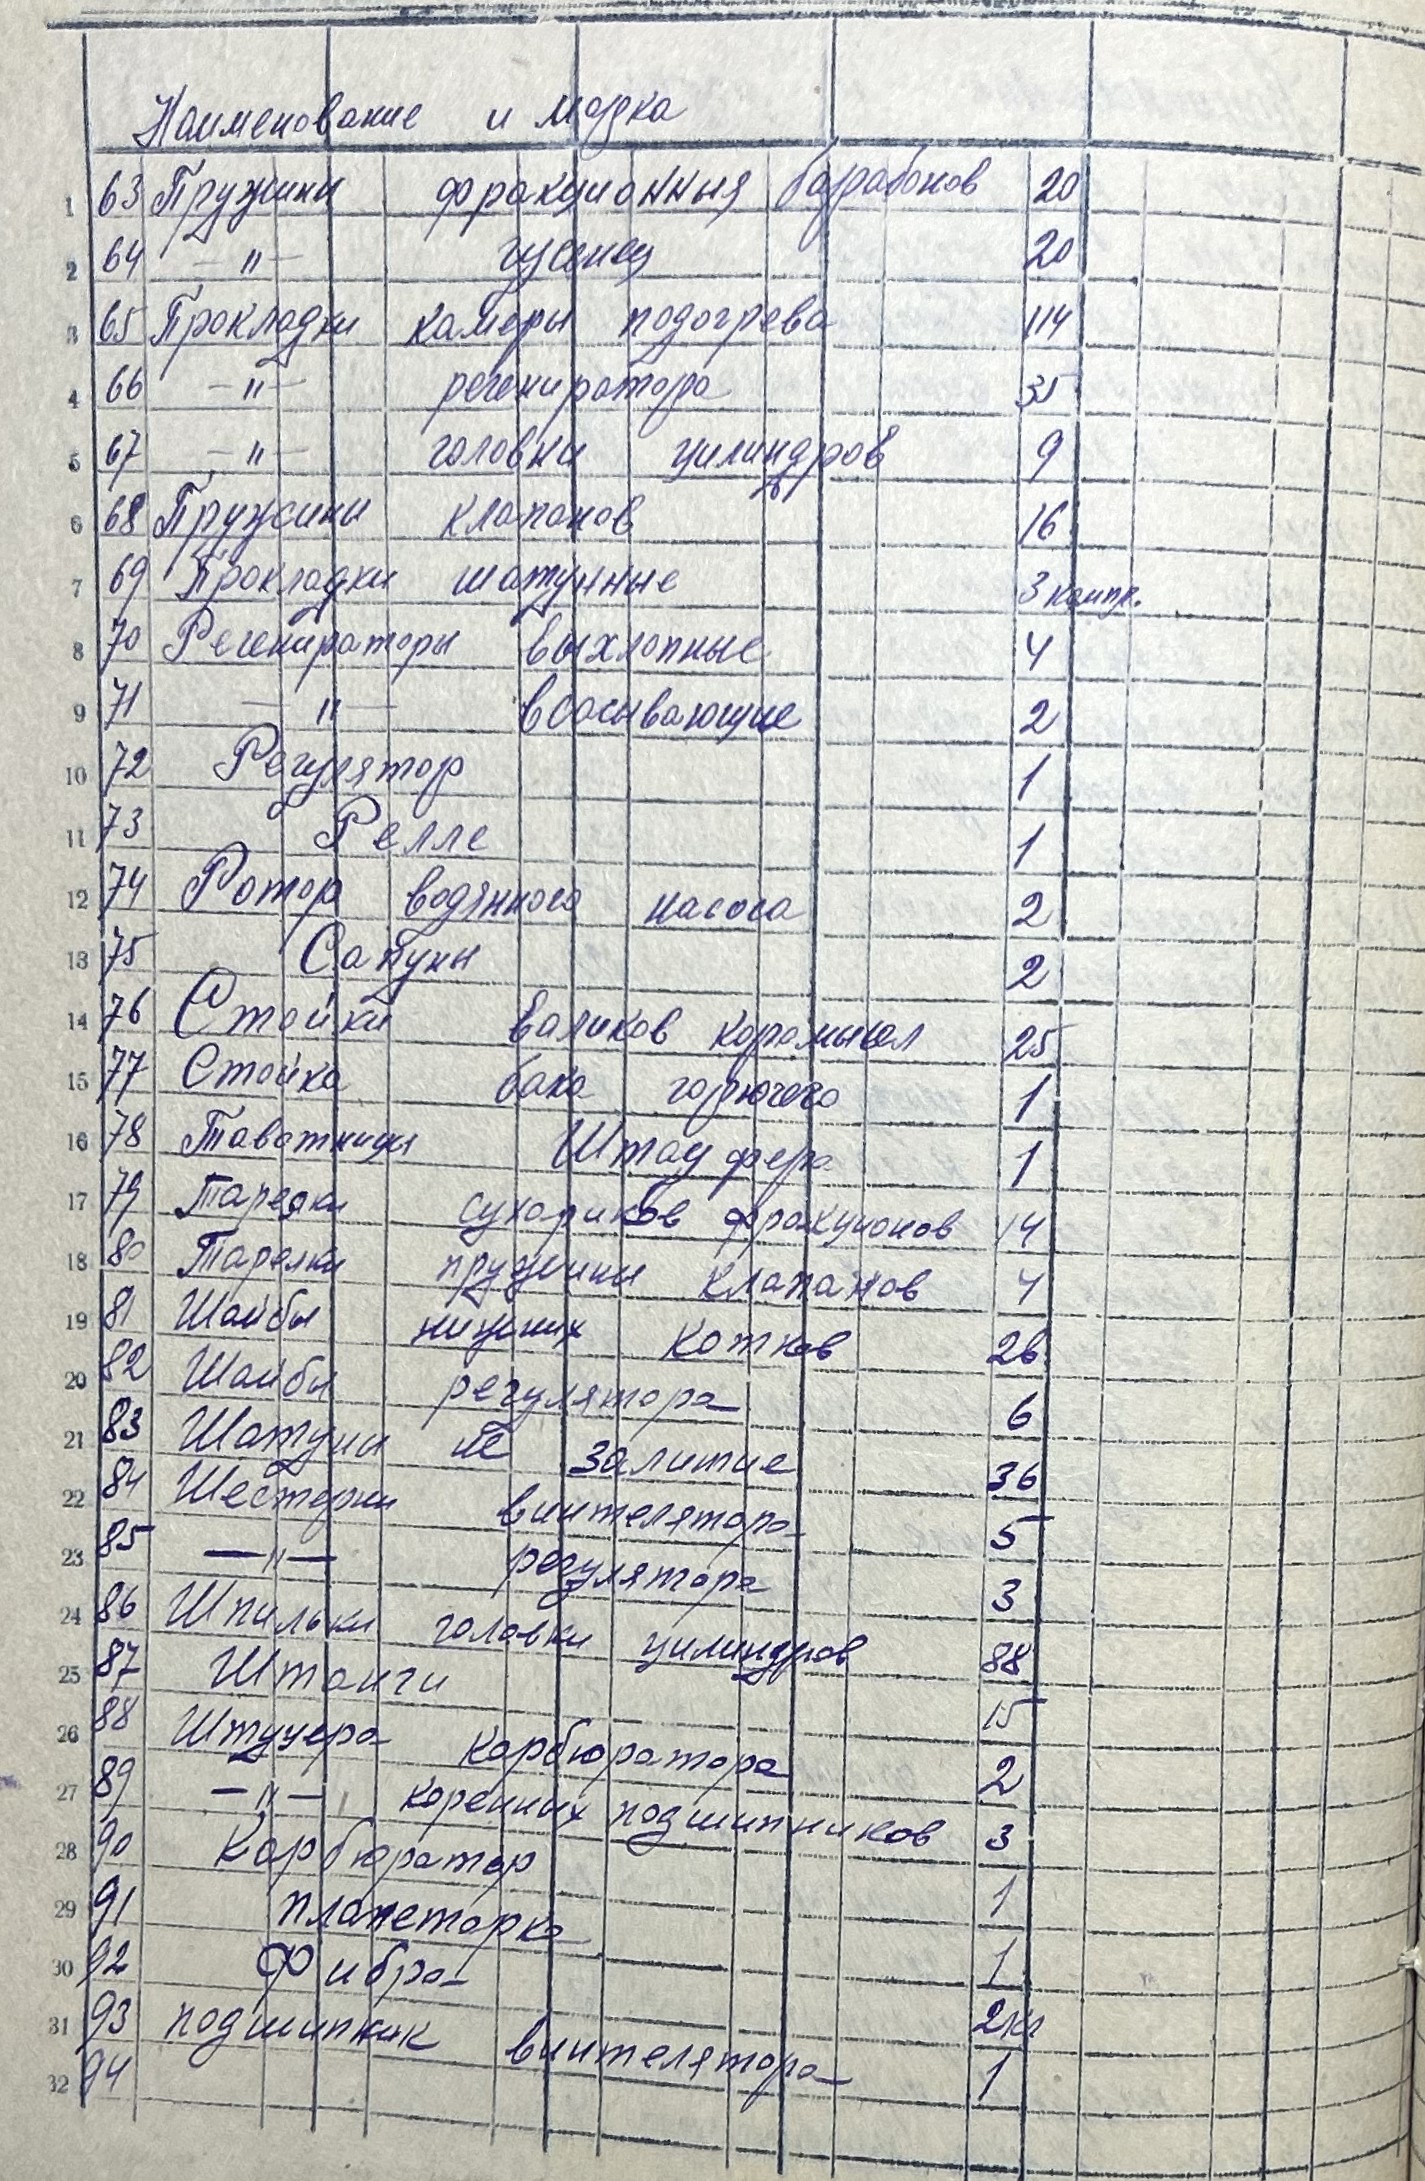 Наименование и марка
1 63 Пружини фракционныя барабонов 20
2 64 —"— гусениц 20
3 65 Прокладки камеры подогрева 114
4 66 —"— регениратора 35
5 67 —"— головки цилиндров 9
6 68 Пружини клапанов 16
7 69 Прокладки шатунные 3 компл.
8 70 Регенираторы выхлопные 4
9 71 —"— всасывающие 2
10 72 Регулятор 1
11 73 Релле 1
12 74 Ротор водянного насоса 2
13 75 Сапуны 2
14 76 Стойки валиков коромысел 25
15 77 Стойка бака горючего 1
16 78 Тавотницы Штауфера 1
17 79 Тарелки сухариков фракционов 14
18 80 Тарелки пружины клапанов 4
19 81 Шайбы нижних котков 26
20 82 Шайбы регулятора 6
21 83 Шатуны не залитие 36
22 84 Шестерни винтелятора 5
23 85 —"— регулятора 3
24 86 Шпильки головки цилиндров 88
25 87 Штанги 15
26 88 Штуцера карбюратора 2
27 89 —"— коренних подшипников 3
28 90 Карбюратор 1
29 91 планеторка 1
30 92 Фибра 2кг
31 93 подшипник винтелятора 1
32 94